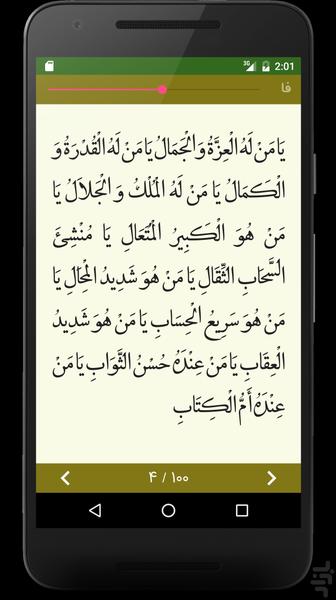 3G 2:01
فا
يَا مَنْ لَهُ الْعِزَّةُ وَ الْجَمَالُ يَا مَنْ لَهُ الْقُدْرَةُ وَ
الْكَمَالُ يَا مَنْ لَهُ الْمُلْكُ وَ الْجَلاَلُ يَا
مَنْ هُوَ الْكَبِيرُ الْمُتَعَالِ يَا مُنْشِئَ
السَّحَابِ الثِّقَالِ يَا مَنْ هُوَ شَدِيدُ الْمِحَالِ يَا
مَنْ هُوَ سَرِيعُ الْحِسَابِ يَا مَنْ هُوَ شَدِيدُ
الْعِقَابِ يَا مَنْ عِنْدَهُ حُسْنُ الثَّوَابِ يَا مَنْ
عِنْدَهُ أُمُّ الْكِتَابِ
۴ / ۱۰۰